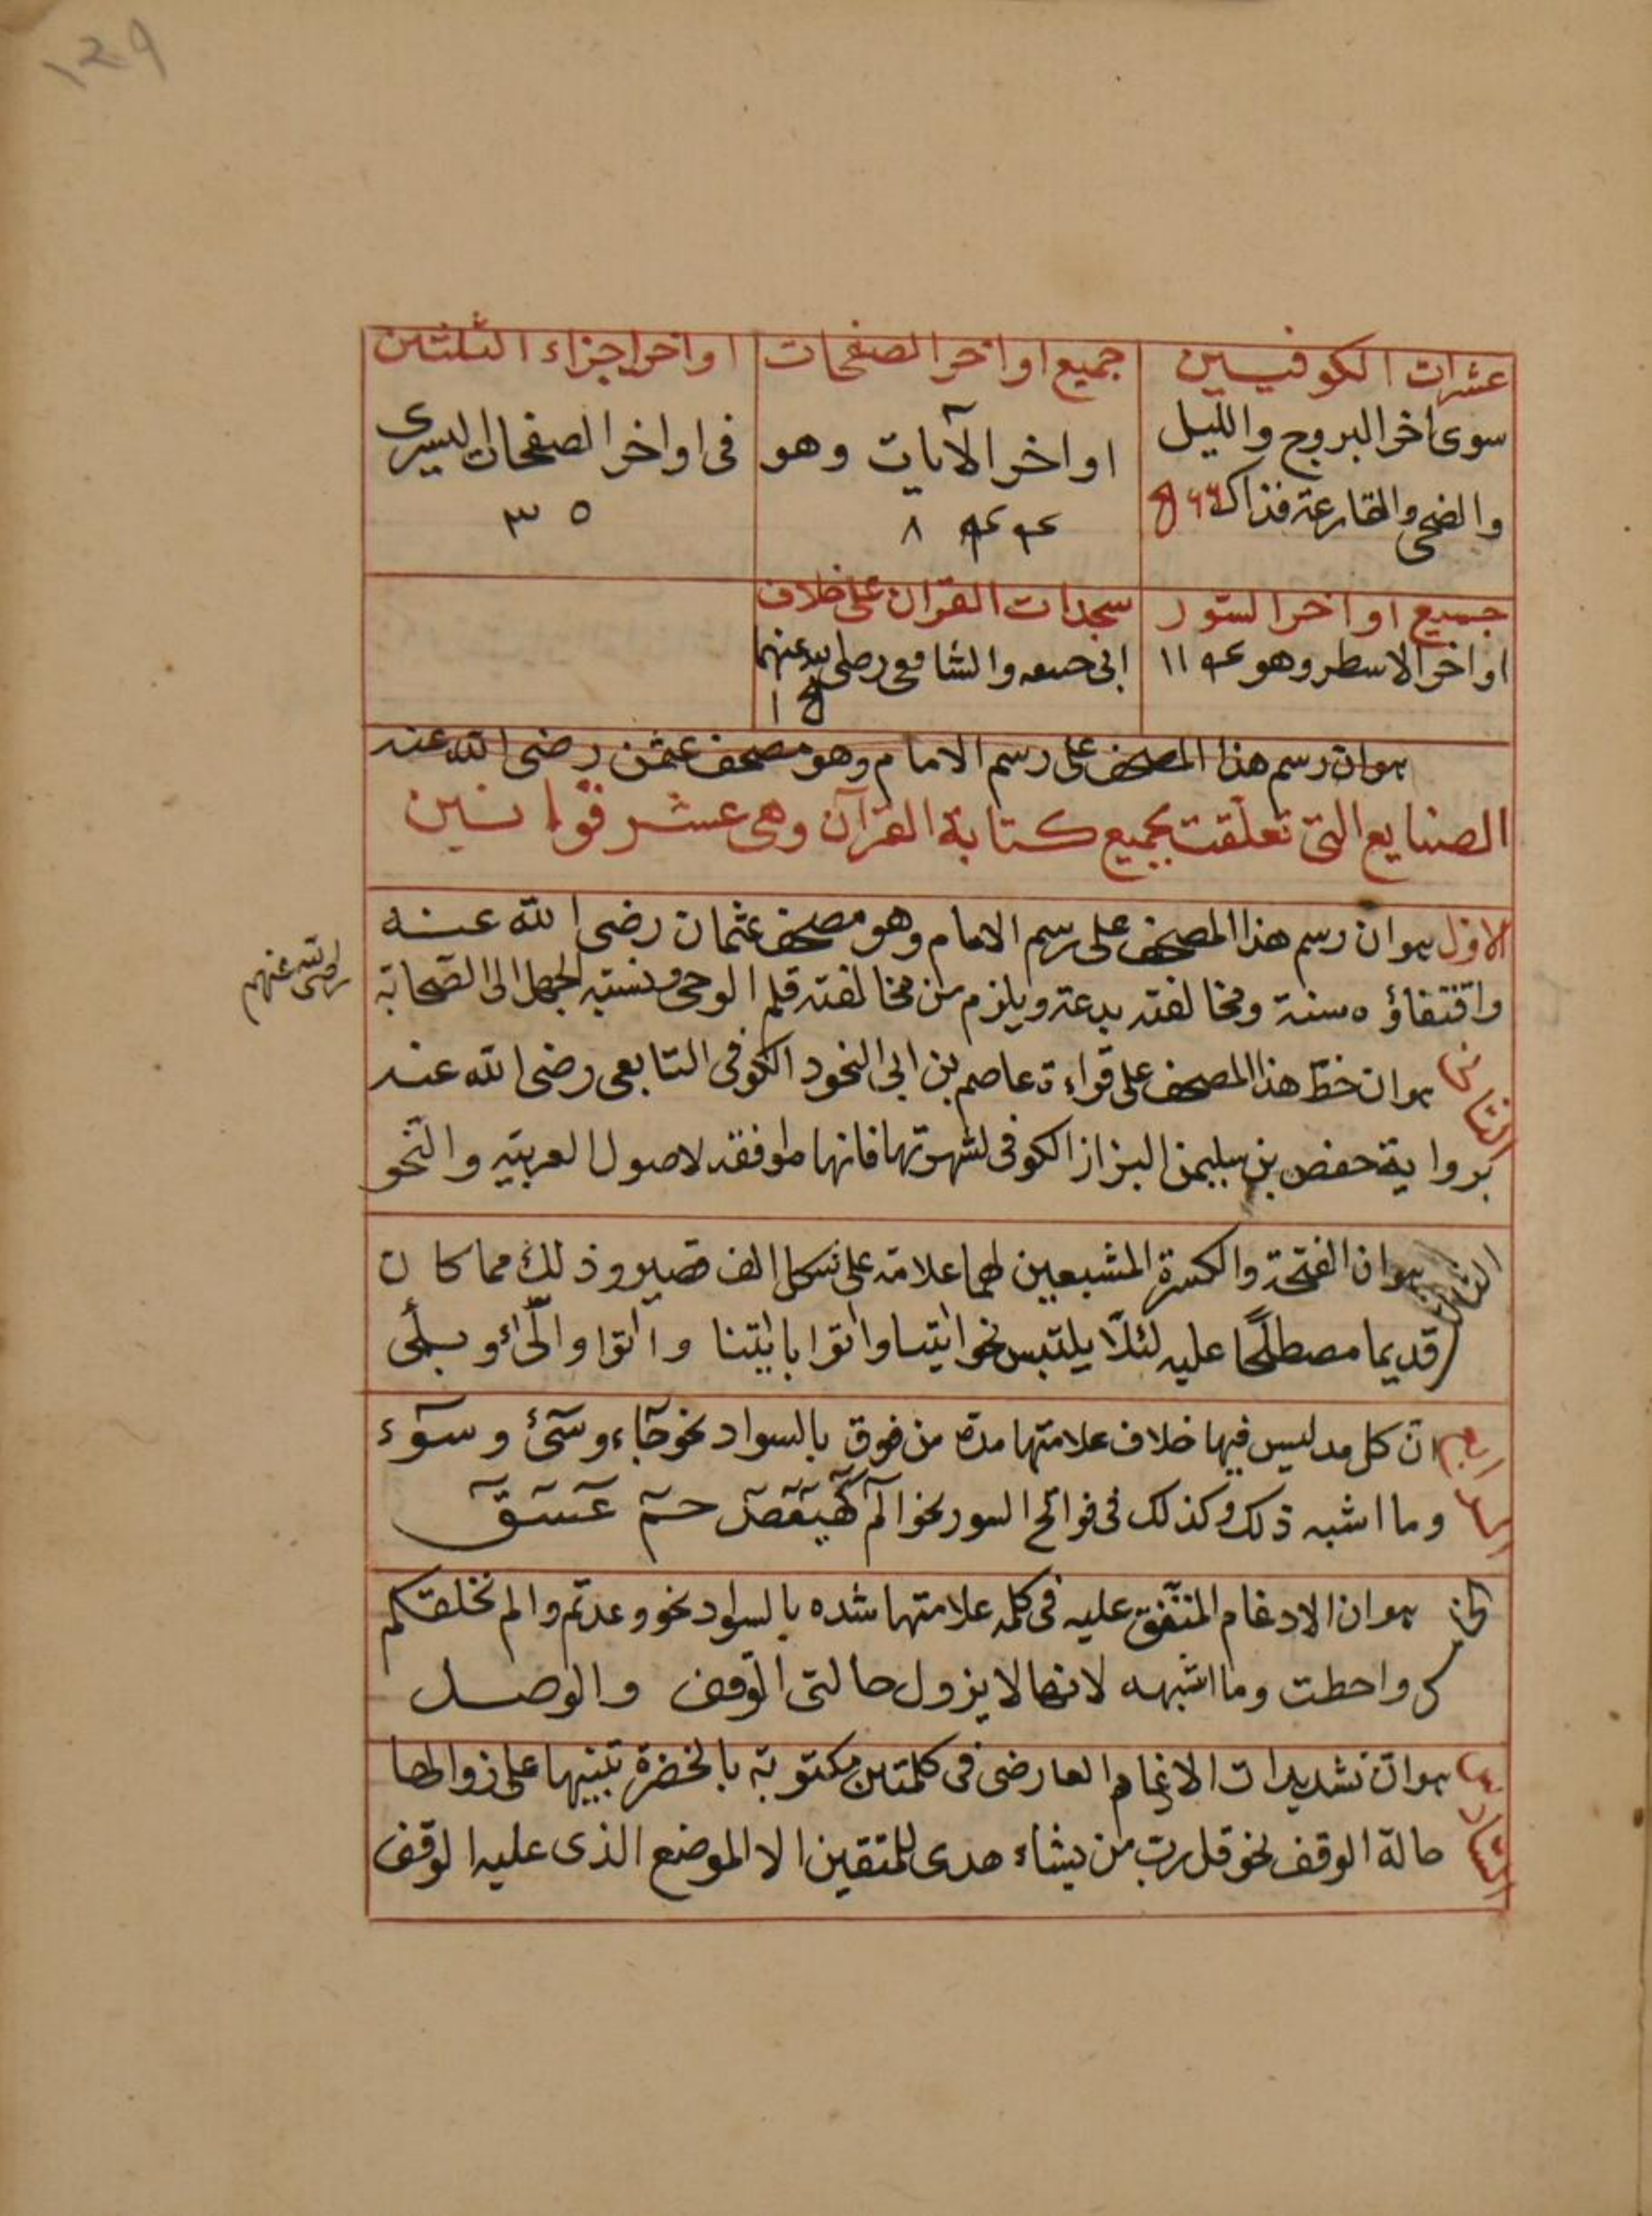 عشرات الكوفيين
سوى اخر البروج والليل
والضحى والقارعة فذاك
جميع اواخر الصفحات
اواخر الآيات وهو
اواخر اجزاء الثلثين
فى اواخر الصفحات اليسرى
٣٥
جميع اواخر السور
اواخر الاسطر وهو
سجدات القران على خلاف
ابى حنيفه والشافعى رضى الله عنهما
هوان رسم هذا المصحف على رسم الامام وهو مصحف عثمن رضى الله عنه
الصنايع التى تعلقت بجميع كتابة القرآن وهى عشر قوانين
الاول هوان رسم هذا المصحف على رسم الامام وهو مصحف عثمان رضى الله عنه
واقتفاؤه سنة ومخالفته بدعة ويلزم من مخالفته قلم الوحى ونسبة الجهل الى الصحابة
رضى الله عنهم
الثانى هوان خط هذا المصحف على قراءة عاصم بن ابى النجود الكوفى التابعى رضى الله عنه
برواية حفص بن سليمن البزاز الكوفى لشهرتها فانها موافقة لاصول العربيه والنحو
الثالث هوان الفتحة والكسرة المشبعين لهما علامة على شكل الف قصير وذلك مما كان
قديما مصطلحا عليه لئلا يلتبس نحو ايتنا واتوا بايتنا واتوا والئ وبلى
الرابع ان كل مد ليس فيها خلاف علامتها مدة من فوق بالسواد نحو جآء وسئ وسوٓء
وما اشبه ذلك وكذلك فى فواتح السور نحو آلم كهيعص حم عسق
الخامس هوان الادغام المتفق عليه فى كلمه علامتها شده بالسواد نحو وعدتم والم نخلقكم
واحطت وما اشبهه لانها لا يزول حالتى الوقف والوصل
السادس هوان تشديدات الادغام العارضى فى كلمتين مكتوبة بالخضرة تنبيها على زوالها
حالة الوقف نحو قل رب من يشاء هدى للمتقين الا الموضع الذى عليه الوقف